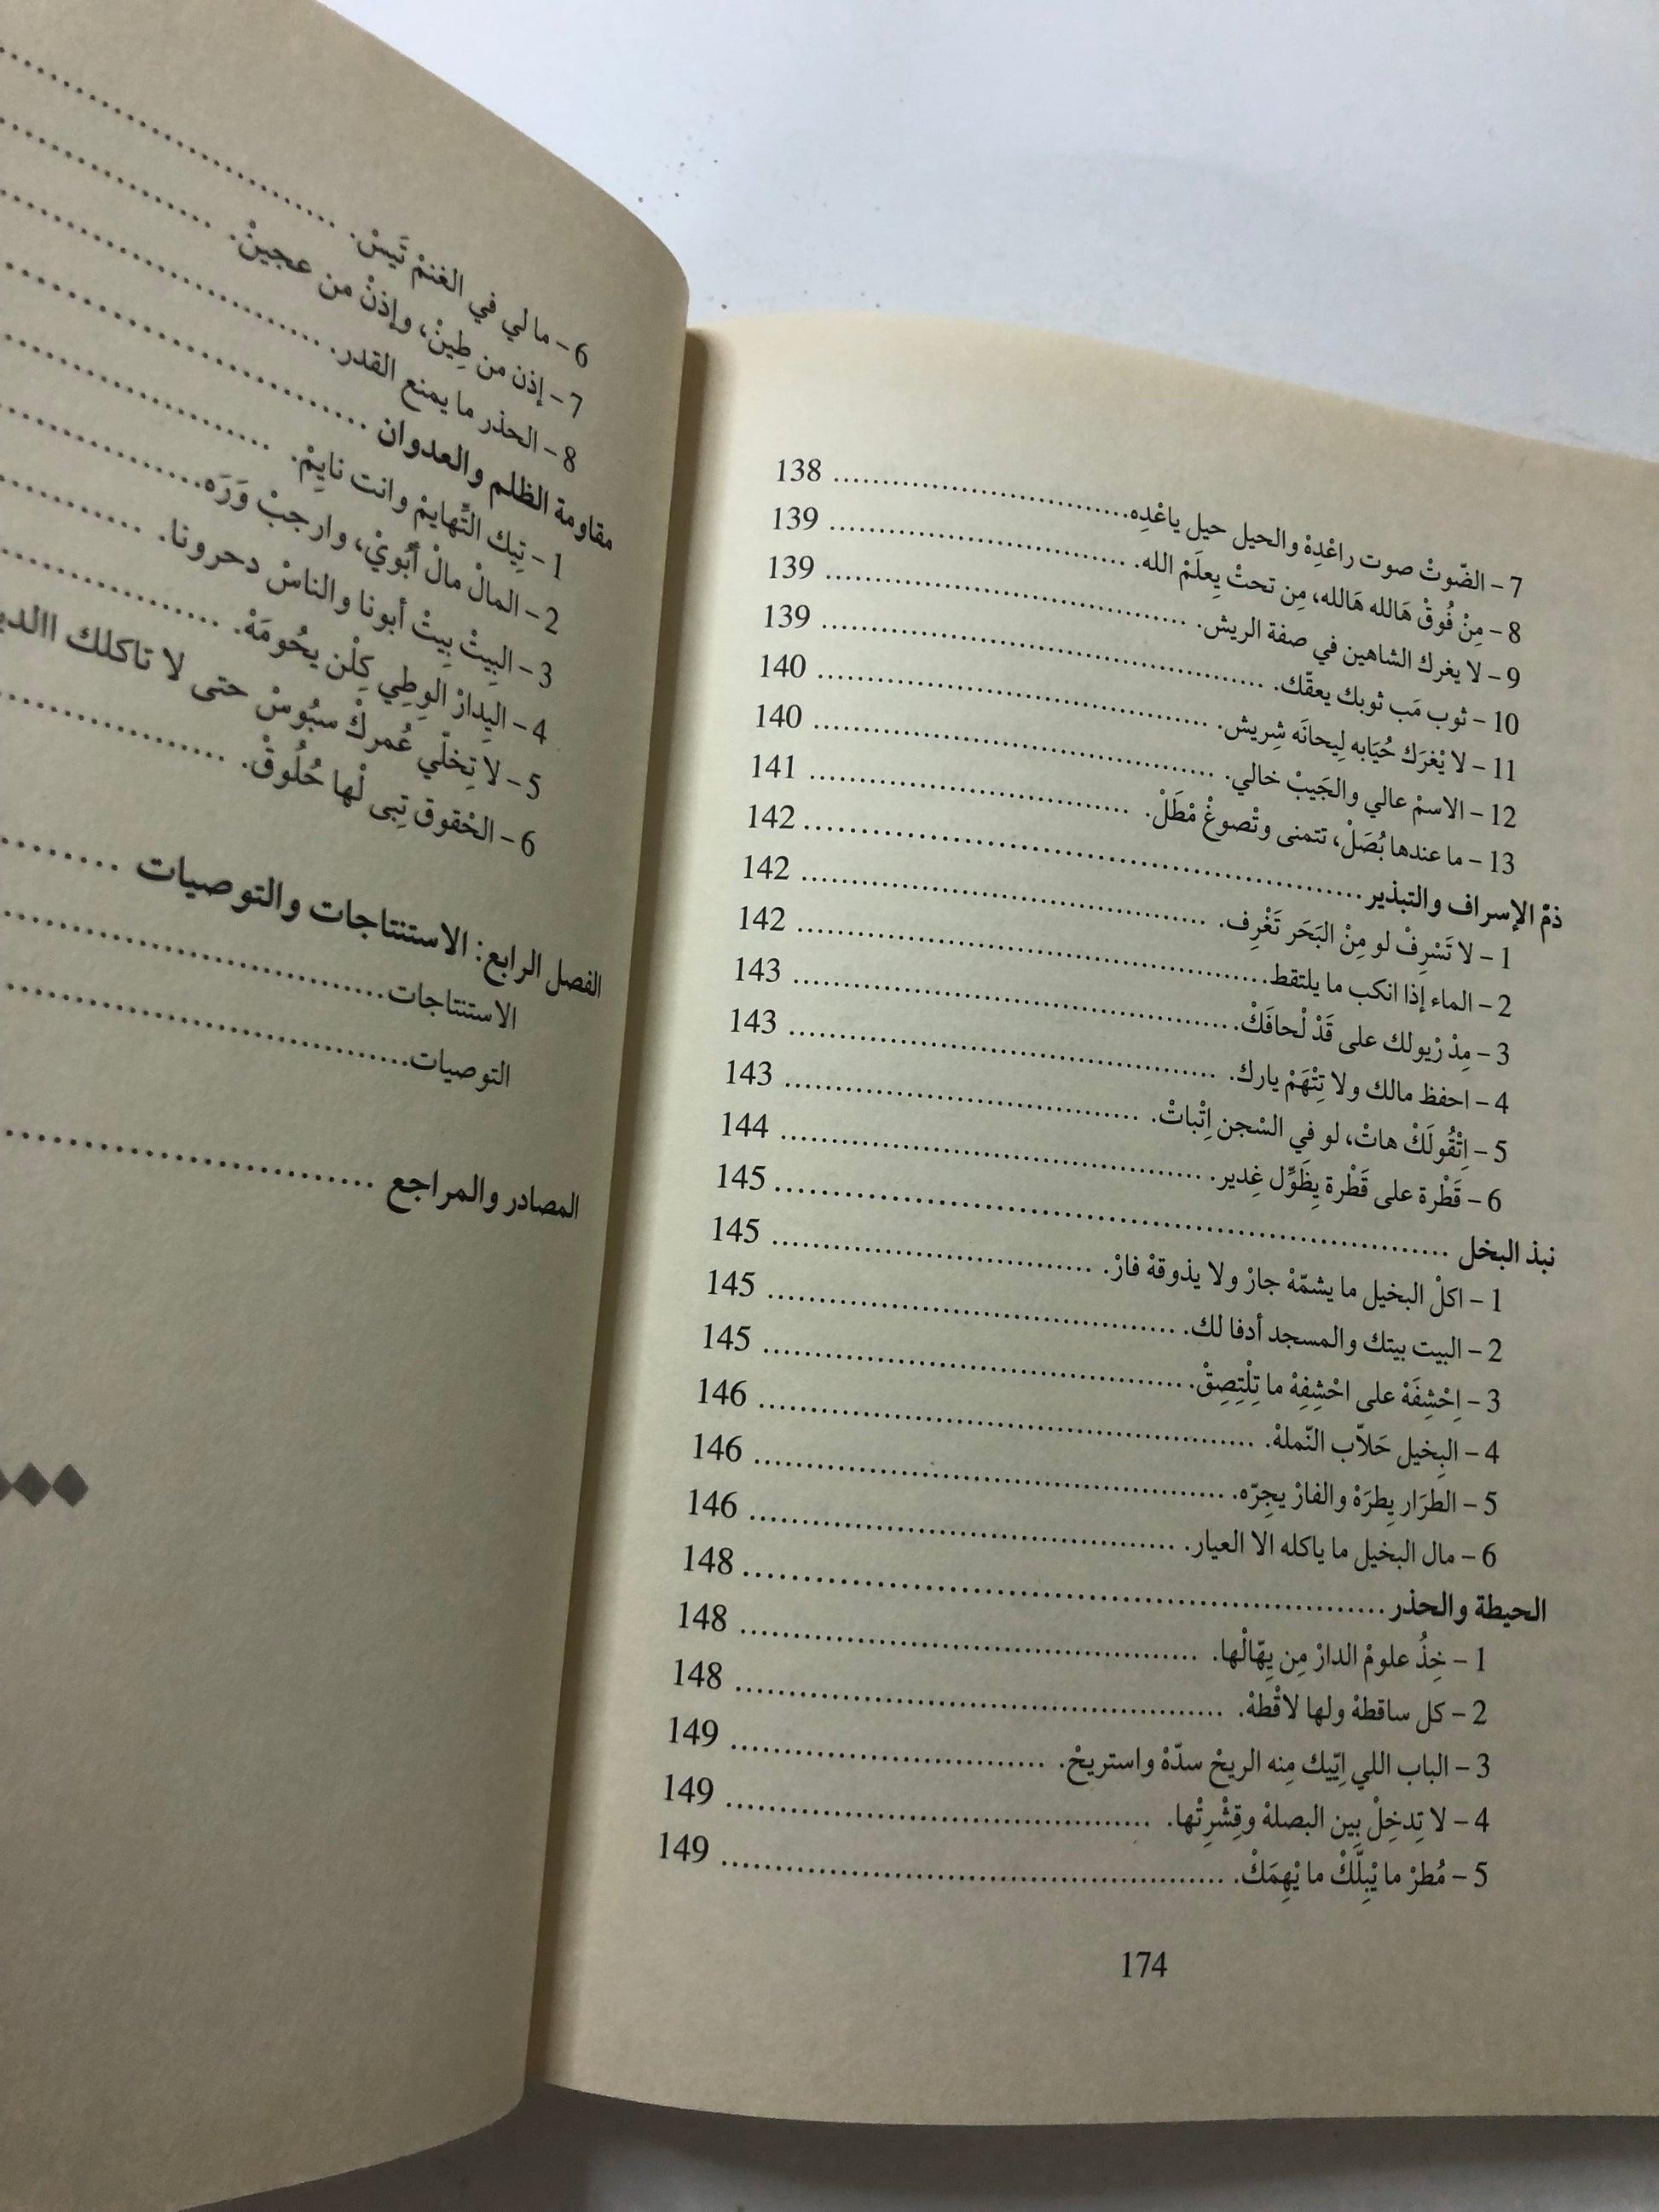 7 – الصّوتْ صوت راعْدِهْ والحيل حيل ياعْدِه. 138
8 – مِنْ فُوقْ هَالله هَالله، مِن تحتْ يِعلَمْ الله. 139
9 – لا يغرك الشاهين في صفة الريش. 139
10 – ثوب مَب ثوبك يعقّك. 139
11 – لا يْغرَك حُبَابه لِيحانَه شِريش. 140
12 – الاسمْ عالي والجَيبْ خالي. 140
13 – ما عندها بُصَلْ، تتمنى وتْصوغْ مْطَلْ. 141
ذمْ الإسراف والتبذير 142
1 – لا تَسْرِفْ لو مِنْ البَحَر تَغْرِف. 142
2 – الماء إذا انكب ما يلتقط 142
3 – مِدْ رْيولك على قَدْ لْحافَكْ. 143
4 – احفظ مالك ولا تِتْهَمْ يارك. 143
5 – اِتْقُولَكْ هاتْ، لو في السْجن اِتْباتْ. 143
6 – قَطْرة على قَطْرة يِظَوِّل غِدير. 144
نبذ البخل 145
1 – اكلْ البخيل ما يشمّهْ جارْ ولا يذوقهْ فارْ. 145
2 – البيت بيتك والمسجد أدفا لك. 145
3 – اِحْشِفَهْ على احْشِفِهْ ما تِلْتِصِقْ. 145
4 – البِخيل حَلاّب النّملهْ. 146
5 – الطرَار يِطرَهْ والفارْ يجِرّه. 146
6 – مال البخيل ما ياكله الا العيار. 146
الحيطة والحذر 148
1 – خِذُ علومْ الدارْ مِن يِهّالْها. 148
2 – كل ساقطهْ ولها لاقْطهْ. 148
3 – الباب اللي اِيّيك مِنه الريحْ سدّهْ واستريحْ. 149
4 – لا تِدخِلْ بِين البصلهْ وقِشْرِتْها. 149
5 – مُطرْ ما يْبِلَّكْ ما يْهِمَكْ. 149
174
6 – ما لي في الغنمْ تَيسْ.
7 – إذن من طِينْ، وإذنْ من عجينْ.
8 – الحذر ما يمنع القدر.
مقاومة الظلم والعدوان
1 – تِيك التّهايمْ وانت نايِمْ.
2 – المالْ مالْ أُبويْ، وارجبْ وَرَه.
3 – البِيتْ بِيتْ أبونا والناسْ دحرونا.
4 – اليِدارْ الوِطِي كِلْن يحُومَهْ.
5 – لا تِخلّي عُمركْ سبُوسْ حتى لا تاكلك
6 – الحْقوق تِبى لْها حُلُوقْ.
الفصل الرابع: الاستنتاجات والتوصيات
الاستنتاجات
التوصيات
المصادر والمراجع